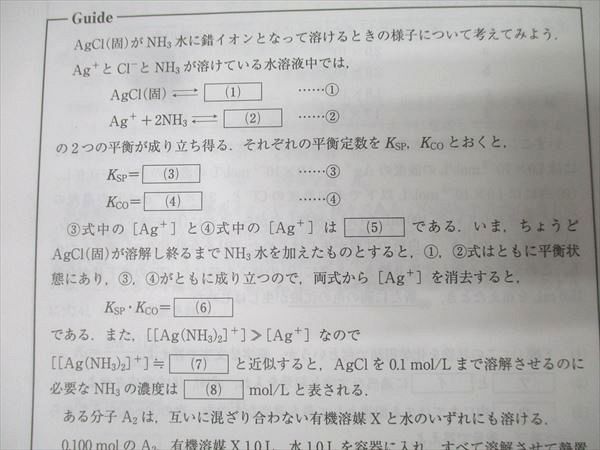 Guide
AgCl(固)がNH₃水に錯イオンとなって溶けるときの様子について考えてみよう.
Ag⁺とCl⁻とNH₃が溶けている水溶液中では,
AgCl(固) ⇄ (1) ……①
Ag⁺+2NH₃ ⇄ (2) ……②
の2つの平衡が成り立ち得る. それぞれの平衡定数をK_SP, K_COとおくと,
K_SP= (3) ……③
K_CO= (4) ……④
③式中の[Ag⁺]と④式中の[Ag⁺]は (5) である. いま, ちょうど
AgCl(固)が溶解し終るまでNH₃水を加えたものとすると, ①, ②式はともに平衡状
態にあり, ③, ④がともに成り立つので, 両式から[Ag⁺]を消去すると,
K_SP・K_CO= (6)
である. また, [[Ag(NH₃)₂]⁺]≫[Ag⁺]なので
[[Ag(NH₃)₂]⁺]≒ (7) と近似すると, AgClを0.1 mol/Lまで溶解させるのに
必要なNH₃の濃度は (8) mol/Lと表される.
ある分子A₂は, 互いに混ざり合わない有機溶媒Xと水のいずれにも溶ける.
0.100 molのA₂, 有機溶媒X 1.0 L, 水1.0 Lを容器に入れ, すべて溶解させて静置